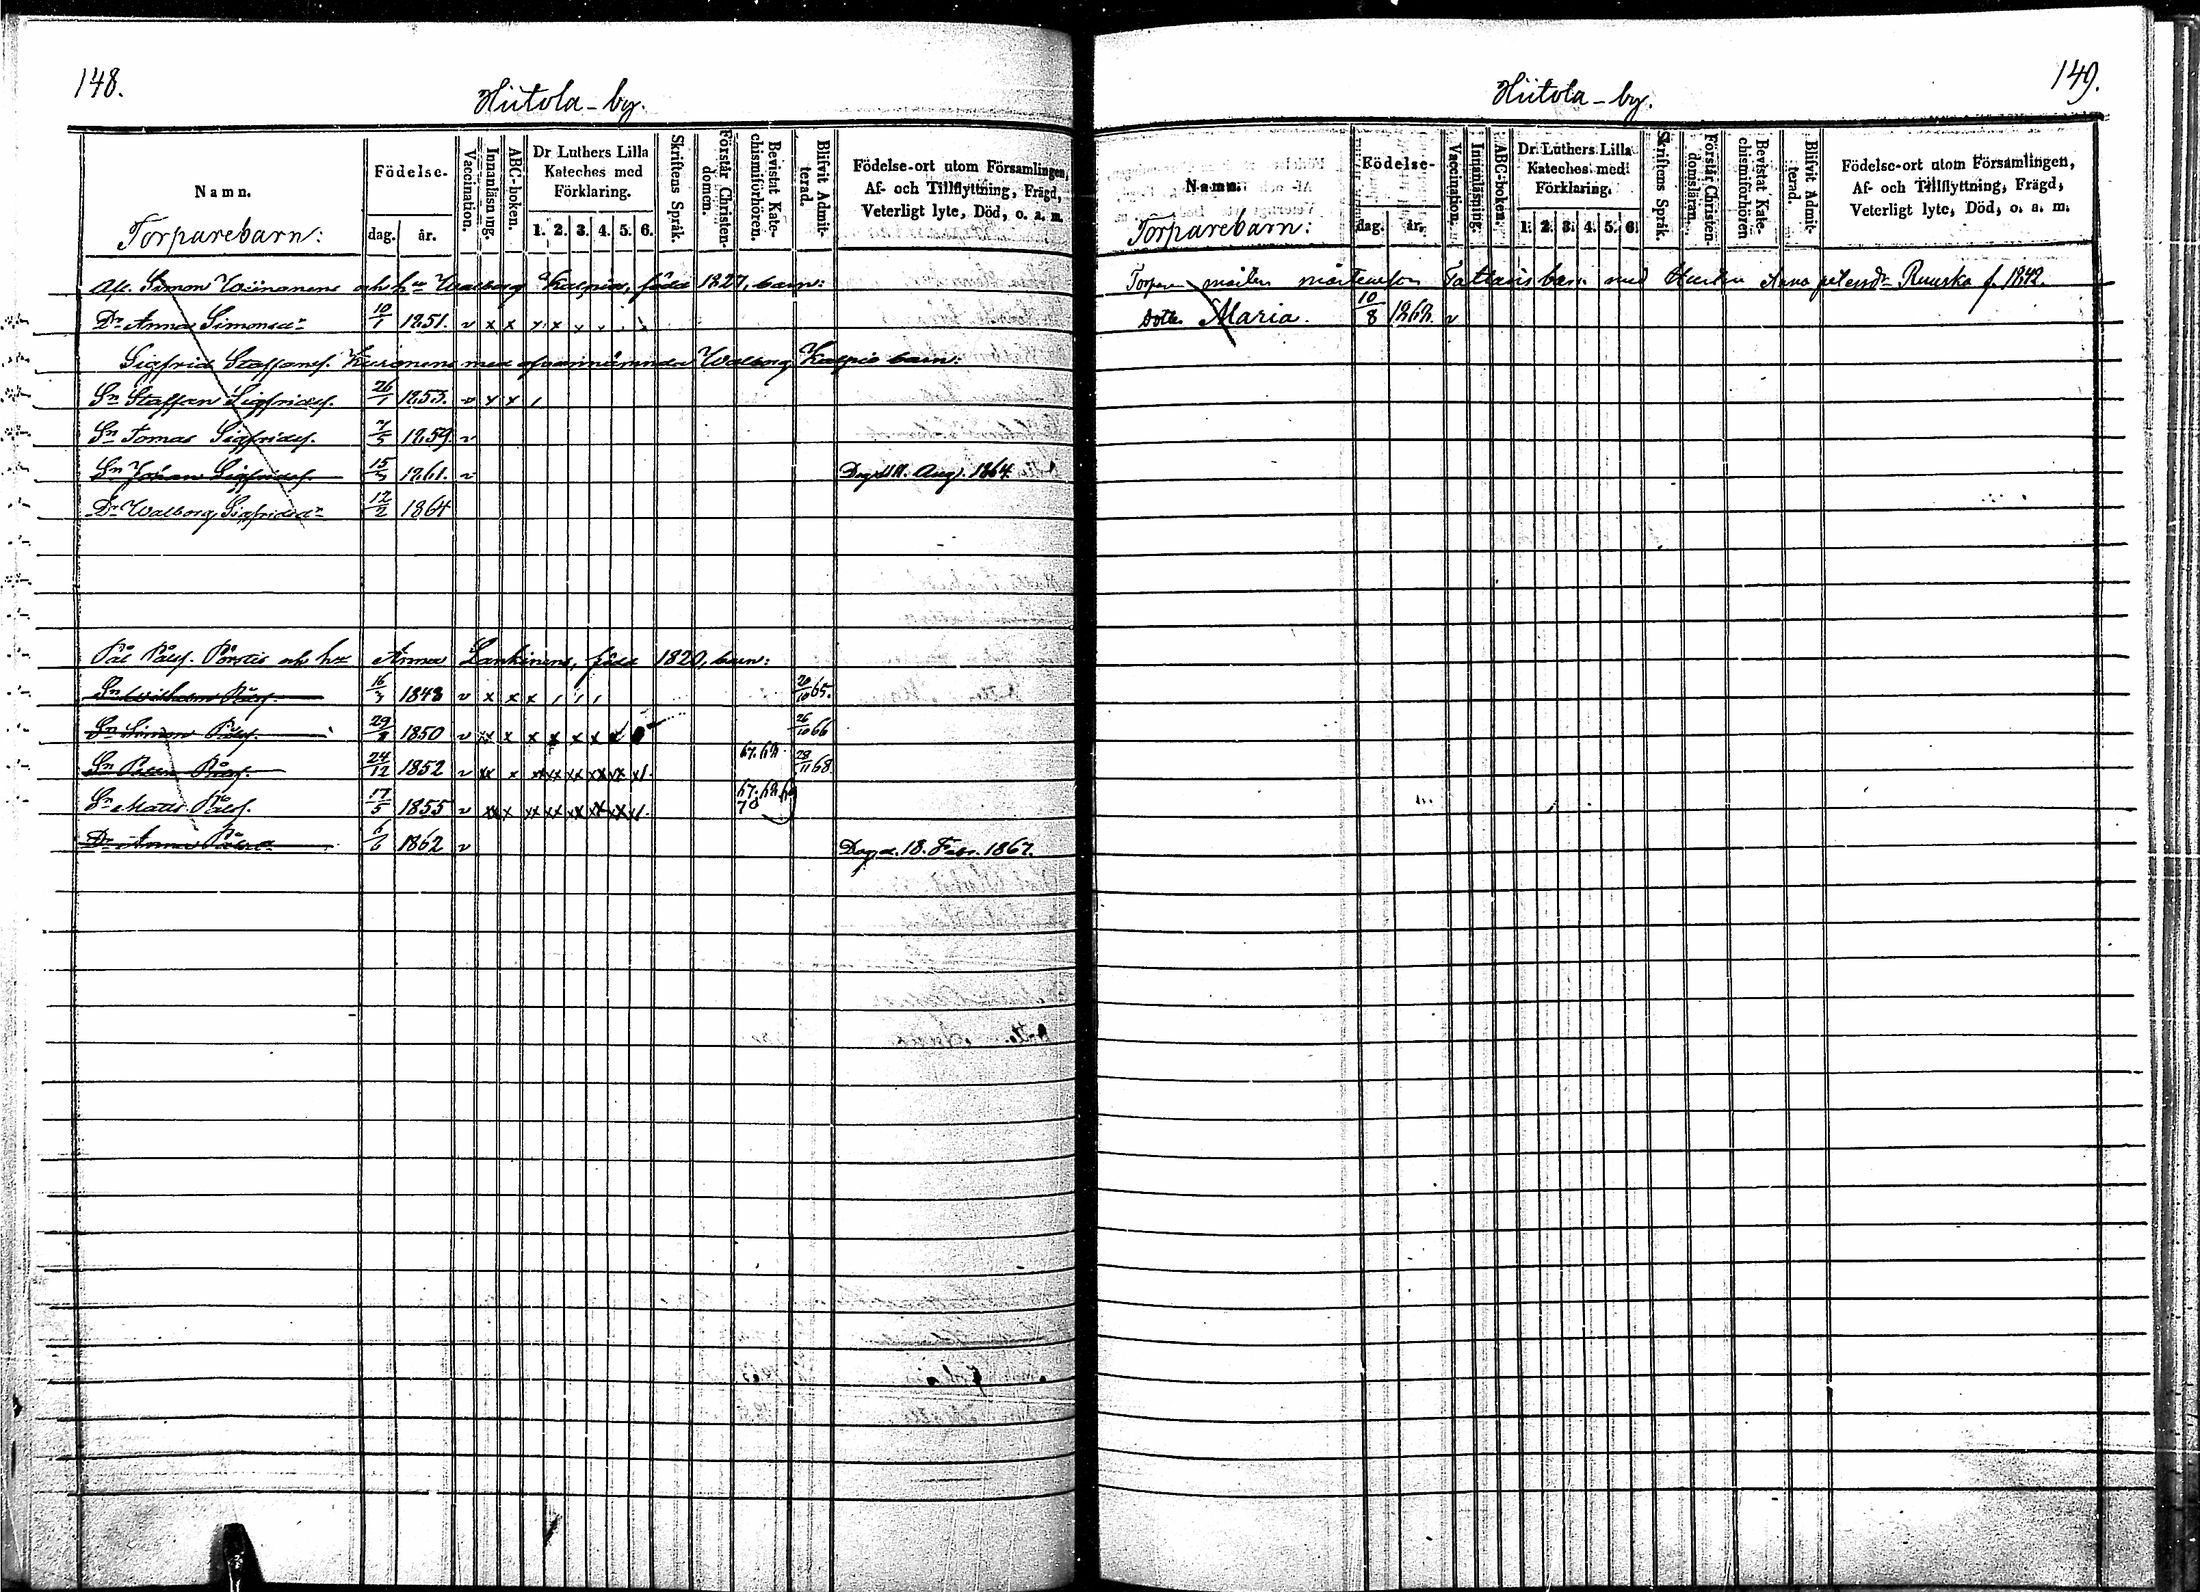 148.
Hiitola-by.
Namn.
Födelse.
Vaccination.
Innanläsning.
ABC-boken.
Dr Luthers Lilla Kateches med Förklaring.
Skriftens Språk.
Förstår Christendomen.
Bevistat Katechismiförhören.
Blifvit Admitterad.
Födelse-ort utom Församlingen,
Af- och Tillflyttning, Frägd,
Veterligt lyte, Död, o. a. m.
Torparebarn:
dag. år.
1. 2. 3. 4. 5. 6.
Afl. Simon och hu Walborg född 1827, barn:
Dr Anna Simonsdr 10/1 1851. v x x
Sigfrid Staffansf. med ofvannämnda Walborg barn:
Sn Staffan Sigfridsf. 26/1 1853. v x x
Sn Tomas Sigfridsf. 7/5 1859. v
Sn Johan Sigfridsf. 15/5 1861. v Död d. 11. Aug. 1864.
Dr Walborg Sigfridsdr 12/2 1864
Pål Pålsf. och hu Anna Lankinen, född 1820, barn:
Sn Wilhelm Pålsf. 1848 v x x x 20/10 65.
Sn Simon Pålsf. 1850 v x x x x x x x 26/10 66
Sn Petter Pålsf. 24/12 1852 v xx x xx xx xx xx xx x 67. 68 29/11 68.
Sn Matts Pålsf. 17/5 1855 v xx x xx xx xx xx xx x 67. 68. 69 70
Dr Anna Pålsdr 6/6 1862 v Död d. 18. Febr. 1867.
149.
Hiitola-by.
Namn.
Födelse-
Vaccination.
Innanläsning.
ABC-boken.
Dr. Luthers Lilla Kateches med Förklaring.
Skriftens Språk.
Förstår Christendomsläran.
Bevistat Katechismiförhören
Blifvit Admitterad.
Födelse-ort utom Församlingen,
Af- och Tillflyttning, Frägd,
Veterligt lyte, Död, o. a. m.
Torparebarn:
dag. år.
1. 2. 3. 4. 5. 6.
Torparen Mårten Mårtensson barn med Hustru Anna Petersdr Ruuska f. 1842.
Dotter Maria. 10/8 1862. v